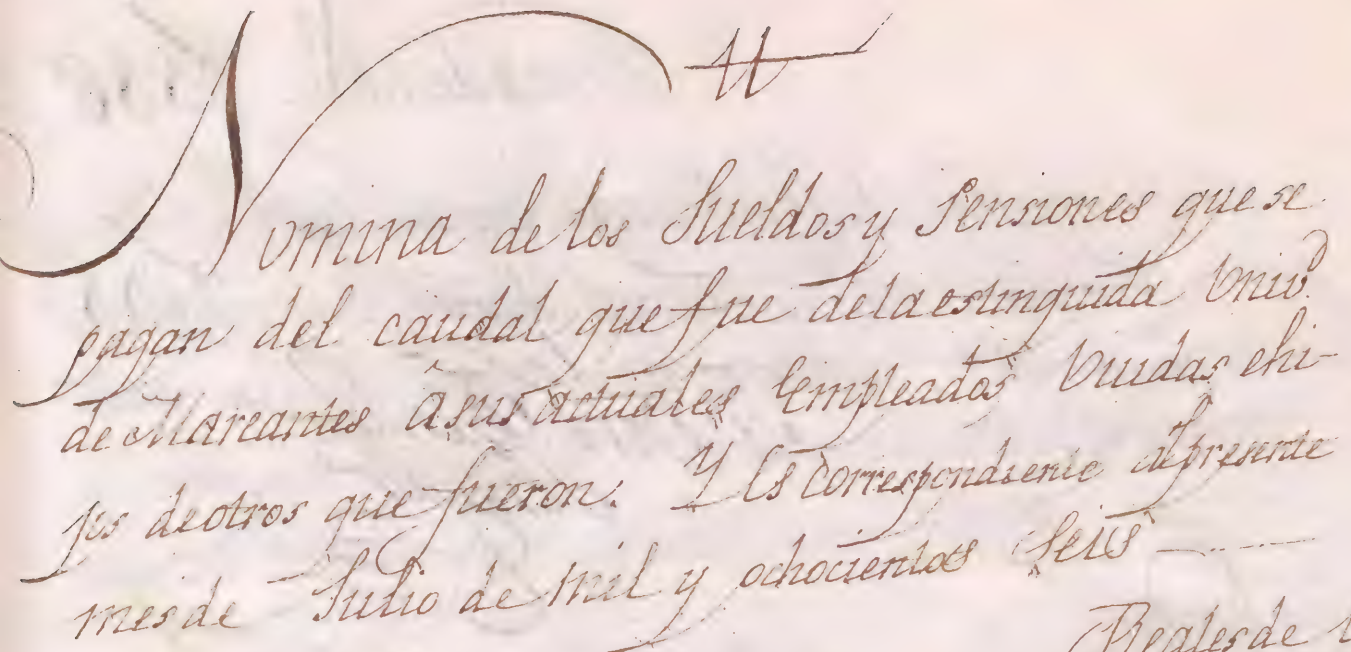 Nomina de los Sueldos y Pensiones que se
pagan del caudal que fue de la estinguida Univ.d
de Mareantes â sus actuales Empleados Viudas e hi-
jos de otros que fueron. Y Es correspondiente al presente
mes de Julio de mil y ochocientos Seis
Reales de